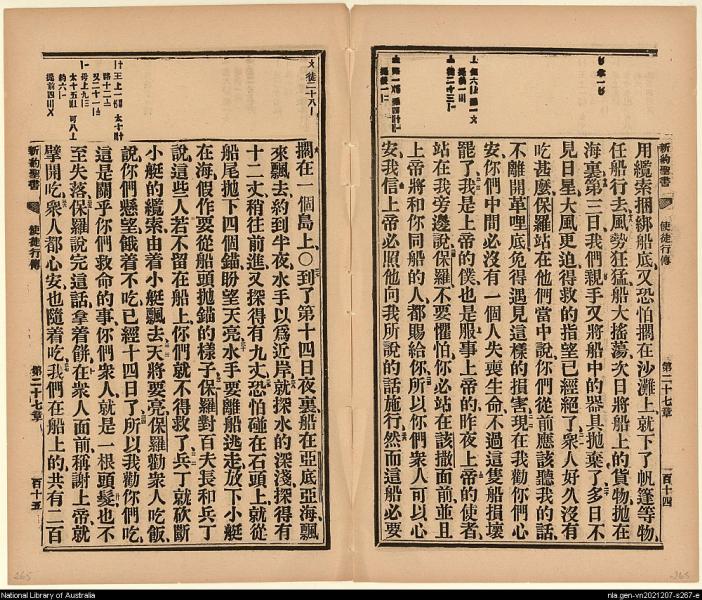 用纜索捆綁船底又恐怕擱在沙灘上就下了帆篷等物
任船行去風勢狂猛船大搖蕩次日將船上的貨物抛在
海裏第三日我們親手又將船中的器具抛棄了多日不
見日星大風更迫得救的指望已經絕了衆人好久沒有
吃甚麼保羅站在他們當中說你們從前應該聽我的話
不離開革哩底免得遇見這樣的損害現在我勸你們心
安你們中間必沒有一個人失喪生命不過這隻船損壞
罷了我是上帝的僕也是服事上帝的昨夜上帝的使者
站在我旁邊說保羅不要懼怕你必站在該撒面前並且
上帝將和你同船的人都賜給你所以你們衆人可以心
安我信上帝必照他向我所說的話施行然而這船必要
新約聖書 使徒行傳 第二十七章 百十四
擱在一個島上〇到了第十四日夜裏船在亞底亞海飄
來飄去約到半夜水手以爲近岸就探水的深淺探得有
十二丈稍往前進又探得有九丈恐怕碰在石頭上就從
船尾抛下四個錨盼望天亮水手要離船逃走放下小艇
在海假作要從船頭抛錨的樣子保羅對百夫長和兵丁
說這些人若不留在船上你們就不得救了兵丁就砍斷
小艇的纜索由着小艇飄去天將要亮保羅勸衆人吃飯
說你們懸望餓着不吃已經十四日了所以我勸你們吃
這是關乎你們救命的事你們衆人就是一根頭髮也不
至失落保羅說完這話拿着餅在衆人面前稱謝上帝就
擘開吃衆人都心安也隨着吃我們在船上的共有二百
新約聖書 使徒行傳 第二十七章 百十五
265
265
National Library of Australia
nla.gen-vn2021207-s267-e